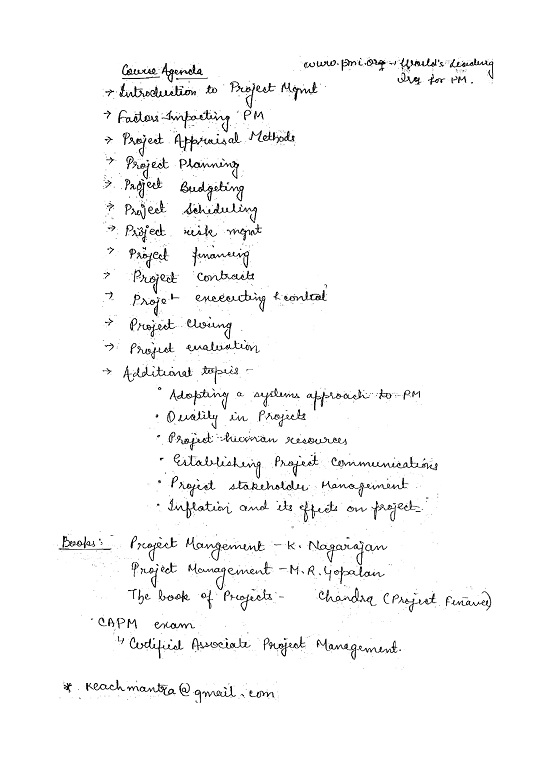 www.pmi.org → World's Leading
Org for PM.
Course Agenda
→ Introduction to Project Mgmt
→ Factors Impacting PM
→ Project Appraisal Methods
→ Project Planning
→ Project Budgeting
→ Project Scheduling
→ Project risk mgmt
→ Project financing
→ Project contracts
→ Project executing & control
→ Project closing
→ Project evaluation
→ Additional topics –
• Adopting a systems approach to PM
• Quality in Projects
• Project human resources
• Establishing Project Communications
• Project stakeholder Management
• Inflation and its effects on project
Books: Project Mangement – K. Nagarajan
Project Management – M.R. Gopalan
The book of Projects – Chandra (Project Finance)
• CAPM exam
↳ Certified Associate Project Management.
* reachmantra@gmail.com